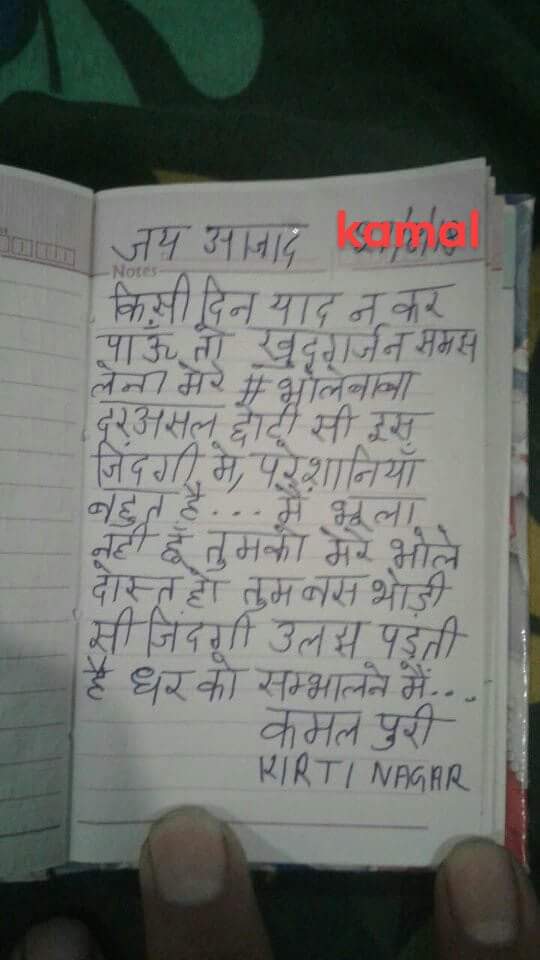 जय आजाद kamal
Notes
किसी दिन याद न कर
पाऊँ तो खुदगर्ज न समझ
लेना मेरे # भोलेबाबा
दरअसल छोटी सी इस
जिंदगी मे, परेशानियाँ
बहुत है... मैं भूला
नही हूँ तुमको मेरे भोले
दोस्त हो तुम बस थोड़ी
सी जिंदगी उलझ पड़ती
है घर को सम्भालने में...
कमल पुरी
KIRTI NAGAR